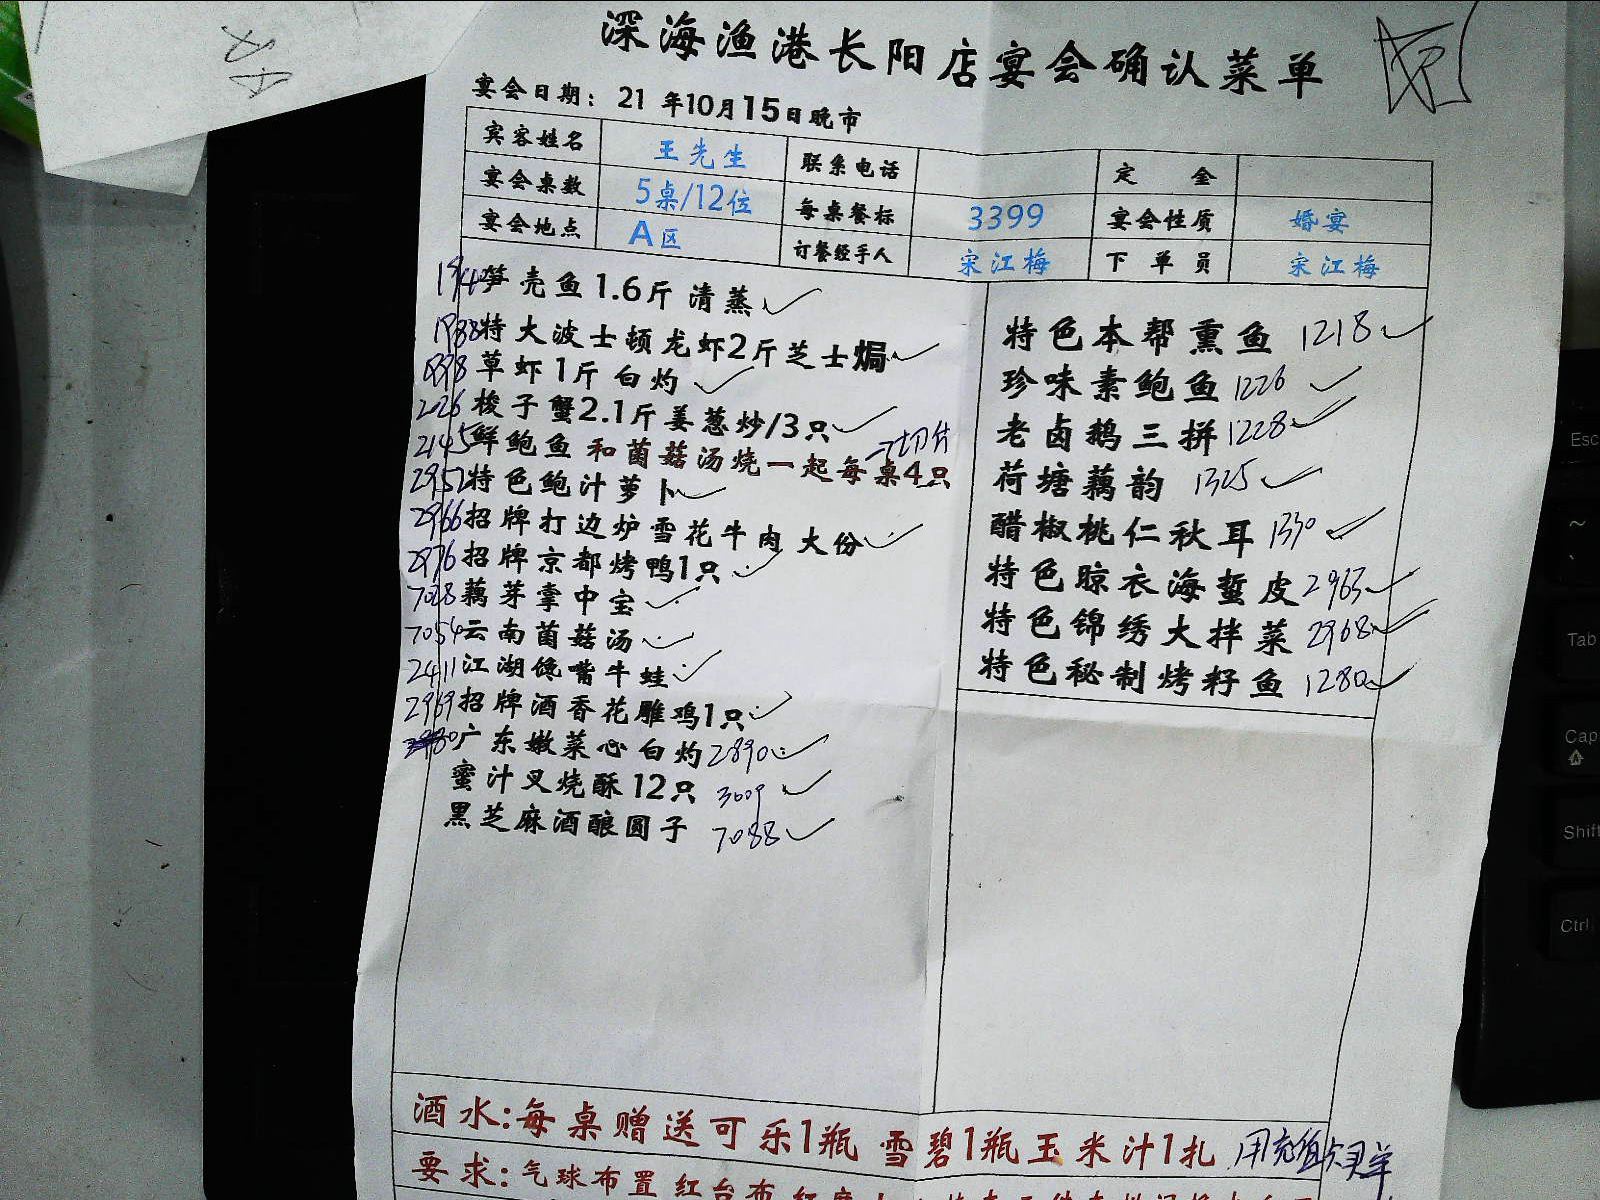 深海渔港长阳店宴会确认菜单
宴会日期：21 年10月15日晚市
宾客姓名 王先生 联系电话 定 金
宴会桌数 5桌/12位 每桌餐标 3399 宴会性质 婚宴
宴会地点 A区 订餐经手人 宋江梅 下单员 宋江梅
笋壳鱼1.6斤 清蒸
1988特大波士顿龙虾2斤芝士焗
草虾1斤白灼
2026梭子蟹2.1斤姜葱炒/3只
一切片
2145鲜鲍鱼 和菌菇汤烧一起每桌4只
2952特色鲍汁萝卜
2966招牌打边炉雪花牛肉 大份
2976招牌京都烤鸭1只
7028藕芽拿中宝
7054云南菌菇汤
2411江湖馋嘴牛蛙
2969招牌酒香花雕鸡1只
广东嫩菜心白灼2890
蜜汁叉烧酥12只 3009
黑芝麻酒酿圆子 7088
特色本帮熏鱼 1218
珍味素鲍鱼1226
老卤鹅三拼1228
荷塘藕韵 1325
醋椒桃仁秋耳1330
特色晾衣海蜇皮2963
特色锦绣大拌菜 2968
特色秘制烤籽鱼 1280
酒水:每桌赠送可乐1瓶 雪碧1瓶玉米汁1扎
要求:气球布置 红台布
Esc
~
Tab
Cap
Shift
Ctrl